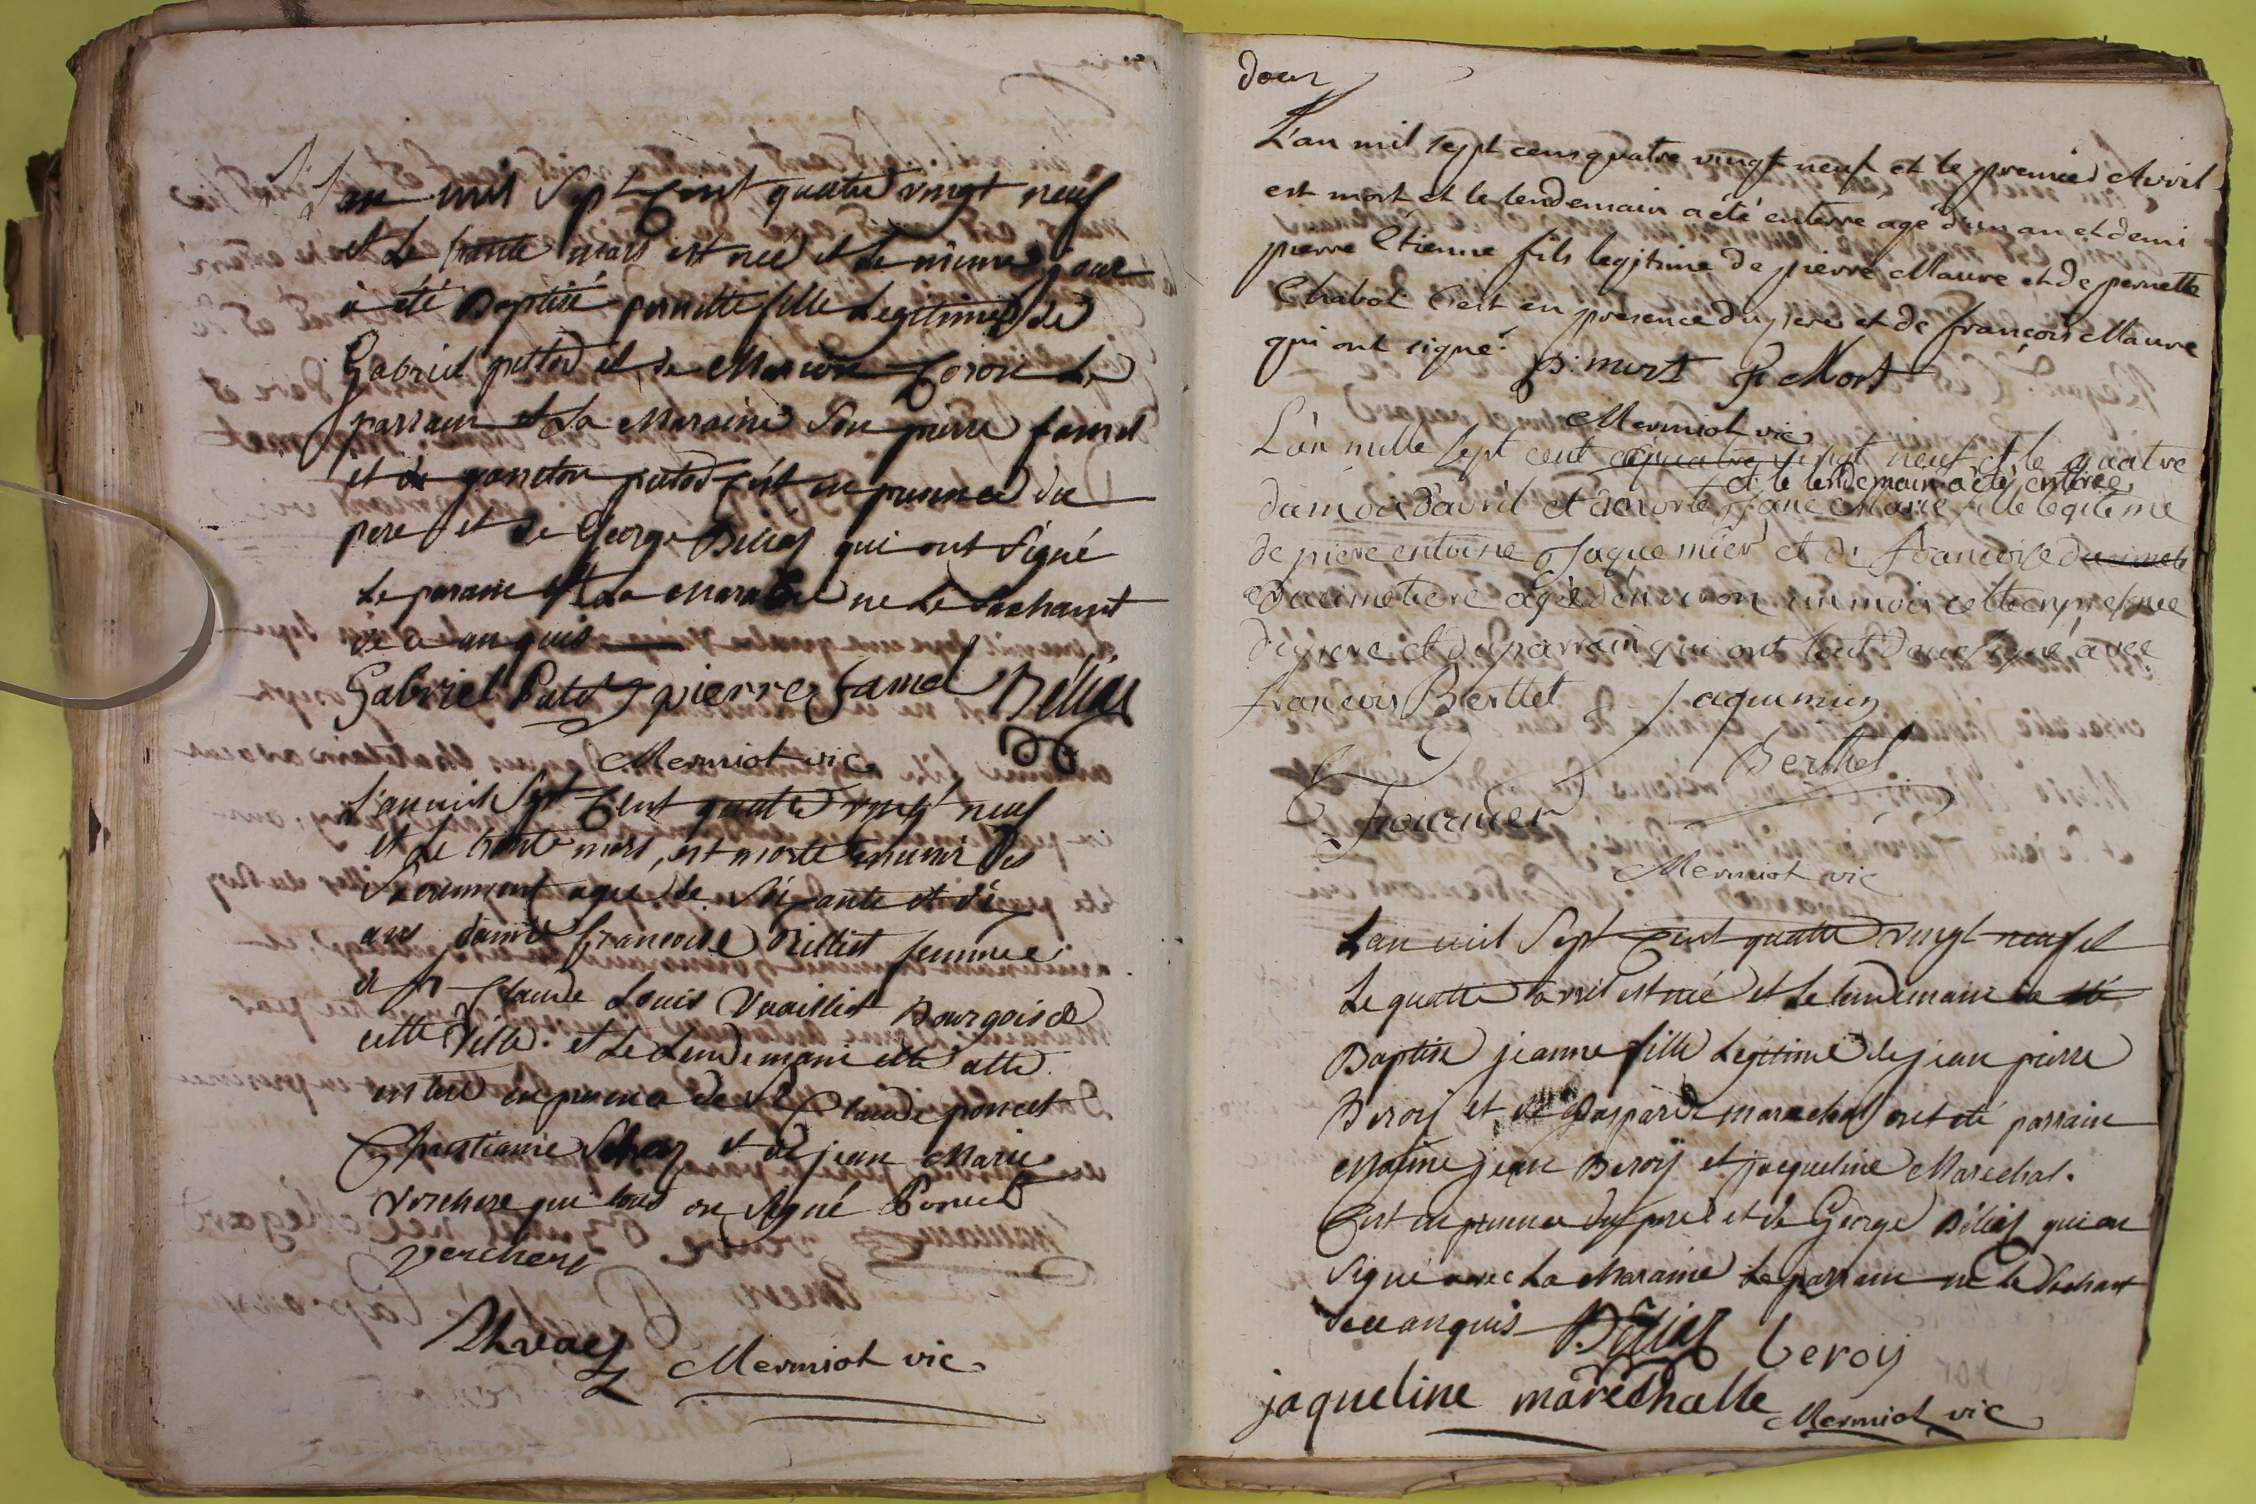 L'an mil Sept Cent quatre vingt neuf
et Le trente mars est neé et Le même jour
a été Baptisé pernette fille Legitime de
Gabriel putod et de Marion Coron Le
parrain et La Maraine Son pierre famel
et de ganeton putod C'est en presence du
pere et de George Béliaz qui ont Signé
Le parain et La Maraine ne Le Sachant
de ce anquis
Gabriel Putod pierre famel Béliaz
Mermiot vic
L'an mil Sept Cent quatre vingt neuf
et Le trente mars, est morte munir des
Sacrement ageé de Soixante et dix
ans dame francoise Rilliet femme
de Sr Claude Louis Vuailliet Bourgois de
cette Ville. et Le Lendemain elle a été
enteré en presence de Sr Claude poncet
Chretienne et de jean Marie
Verchere qui tous on Signé Poncet
verchere
Mermiot vic
doux
L'an mil sept cens quatre vingt neuf et le premier Avril
est mort et le lendemain a été enterré agé d'un an et demi
pierre Etienne fils legitime de pierre Maure et de pernette
Chabot C'est en presence du pere et de françois Maure
qui ont signé. P. mort F Mort
Mermiot vic
L'an mille sept cent quatre vingt neuf et le quatre
et le lendemain a été enterée
du mois d'avril et de morte jane Marie fille legiteme
de piere entoine Jaquemier et de francoise ducimete
Ducimetiere agé d'environ un mois cest en presence
du pere et du parrain qui ont tout deux signé avec
francois Berttet Jaquemien
Berthet
Fournier
Mermiot vic
L'an mil Sept Cent quatre vingt neuf et
Le quatre avril est neé et Le lendemain a été
Baptisé jeanne fille Legitime de jean pierre
Beroy et de Gasparde marechal ont été parrain
Maraine jean Beroy et jacqueline Marechal.
C'est en presence du pere et de George Béliaz qui on
Signé avec La Maraine Le parrain ne Le Sachant
de ce anquis Béliaz beroy
jaqueline marechalle Mermiot vic